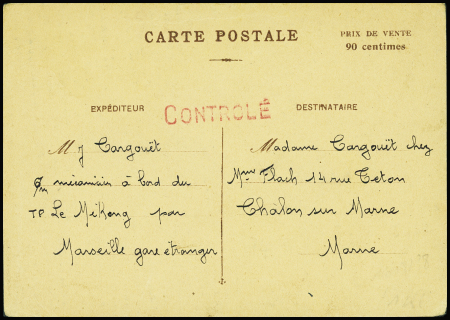 CARTE POSTALE
PRIX DE VENTE
90 centimes
EXPÉDITEUR
CONTROLÉ
DESTINATAIRE
M J Cargouët
mécanicien à bord du
TP Le Mékong par
Marseille gare étranger
Madame Cargouët chez
Mme Flach 14 rue Teton
Châlon sur Marne
Marne